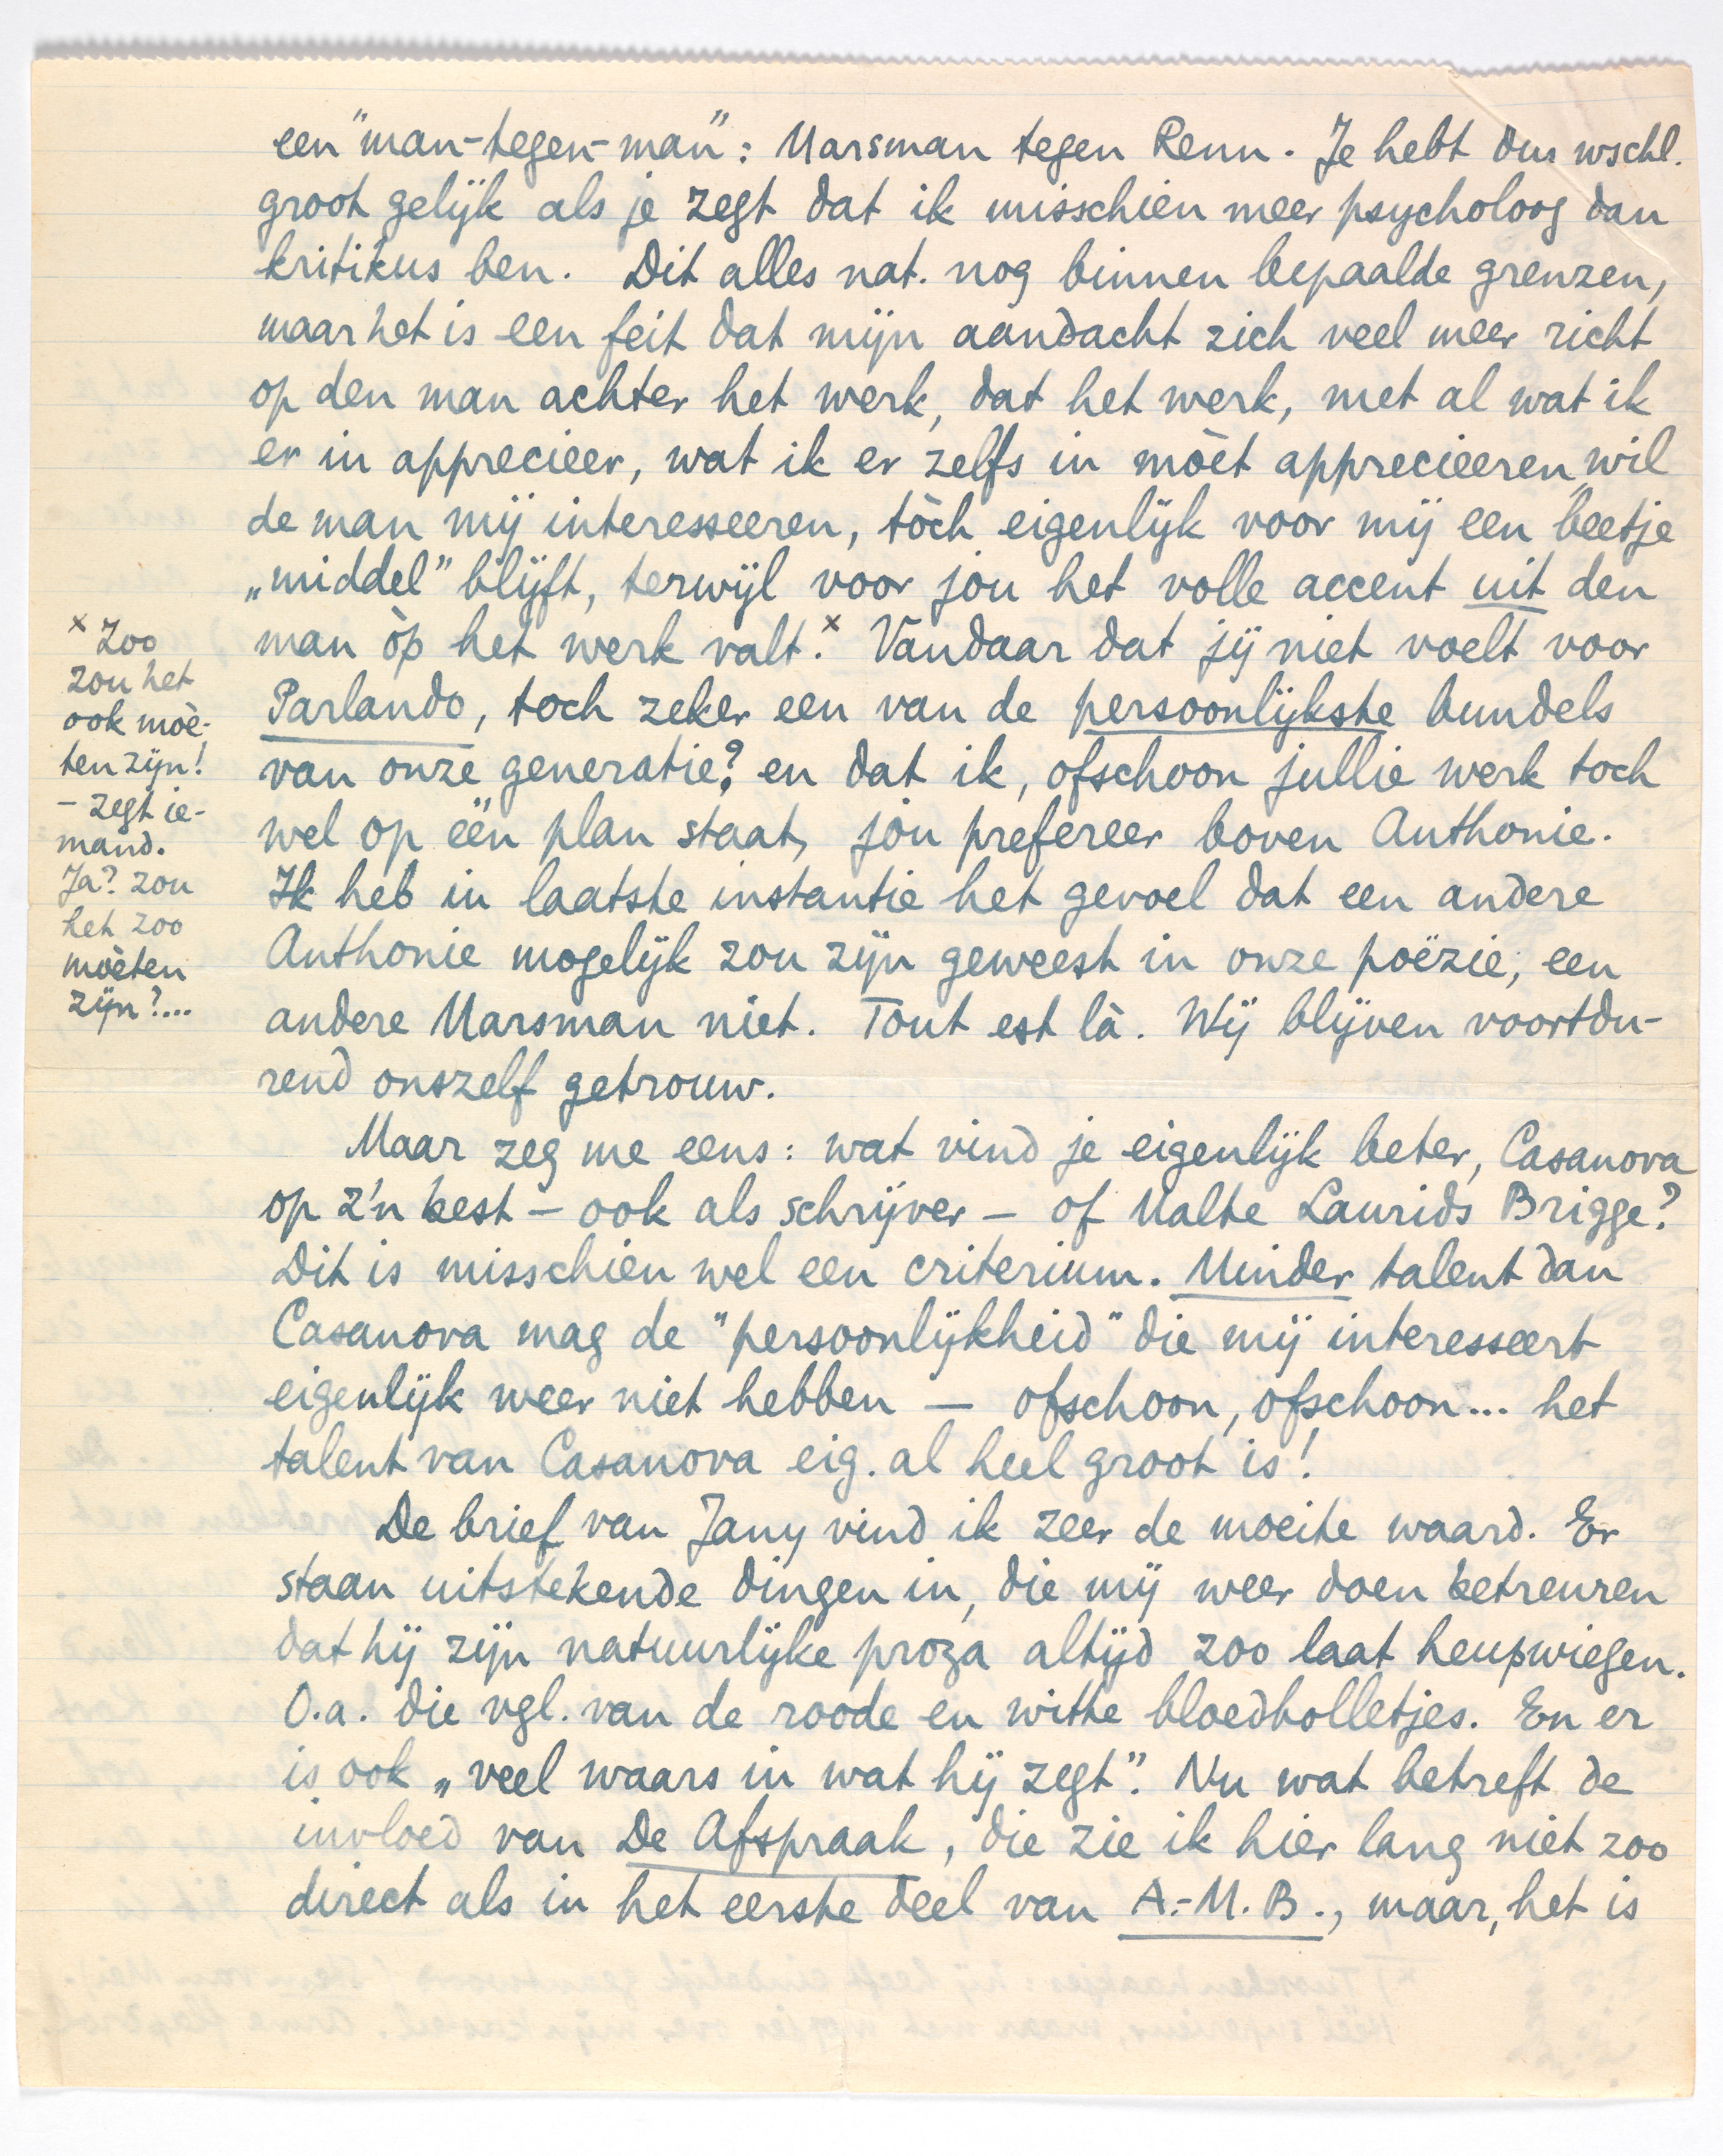 een "man-tegen-man": Marsman tegen Renn. Je hebt dus wschl.
groot gelijk als je zegt dat ik misschien meer psycholoog dan
kritikus ben. Dit alles nat. nog binnen bepaalde grenzen,
maar het is een feit dat mijn aandacht zich veel meer richt
op den man achter het werk, dat het werk, met al wat ik
er in apprecieer, wat ik er zelfs in mòet apprecieeren, wil
de man mij interesseeren, tòch eigenlijk voor mij een beetje
„middel" blijft, terwijl voor jou het volle accent uit den
man òp het werk valt.x Vandaar dat jij niet voelt voor
Parlando, toch zeker een van de persoonlijkste bundels
van onze generatie? en dat ik, ofschoon jullie werk toch
wel op één plan staat, jòu prefereer boven Anthonie.
Ik heb in laatste instantie het gevoel dat een andere
Anthonie mogelijk zou zijn geweest in onze poëzie, een
andere Marsman niet. Tout est là. Wij blijven voortdu-
rend onszelf getrouw.
x Zoo
zou het
ook moè-
ten zijn!
- zegt ie-
mand.
Ja? zou
het zoo
mòeten
zijn?...
Maar zeg me eens: wat vind je eigenlijk beter, Casanova
op z'n best - ook als schrijver - of Malte Laurids Brigge?
Dit is misschien wel een criterium. Minder talent dan
Casanova mag de "persoonlijkheid" die mij interesseert
eigenlijk weer niet hebben — ofschoon, ofschoon... het
talent van Casanova eig. al heel groot is!
De brief van Jany vind ik zeer de moeite waard. Er
staan uitstekende dingen in, die mij weer doen betreuren
dat hij zijn natuurlijke proza altijd zoo laat heupwiegen.
O.a. die vgl. van de roode en witte bloedbolletjes. En er
is ook „veel waars in wat hij zegt". Nu wat betreft de
invloed van De Afspraak, die zie ik hier lang niet zoo
direct als in het eerste deel van A.-M.B., maar, het is